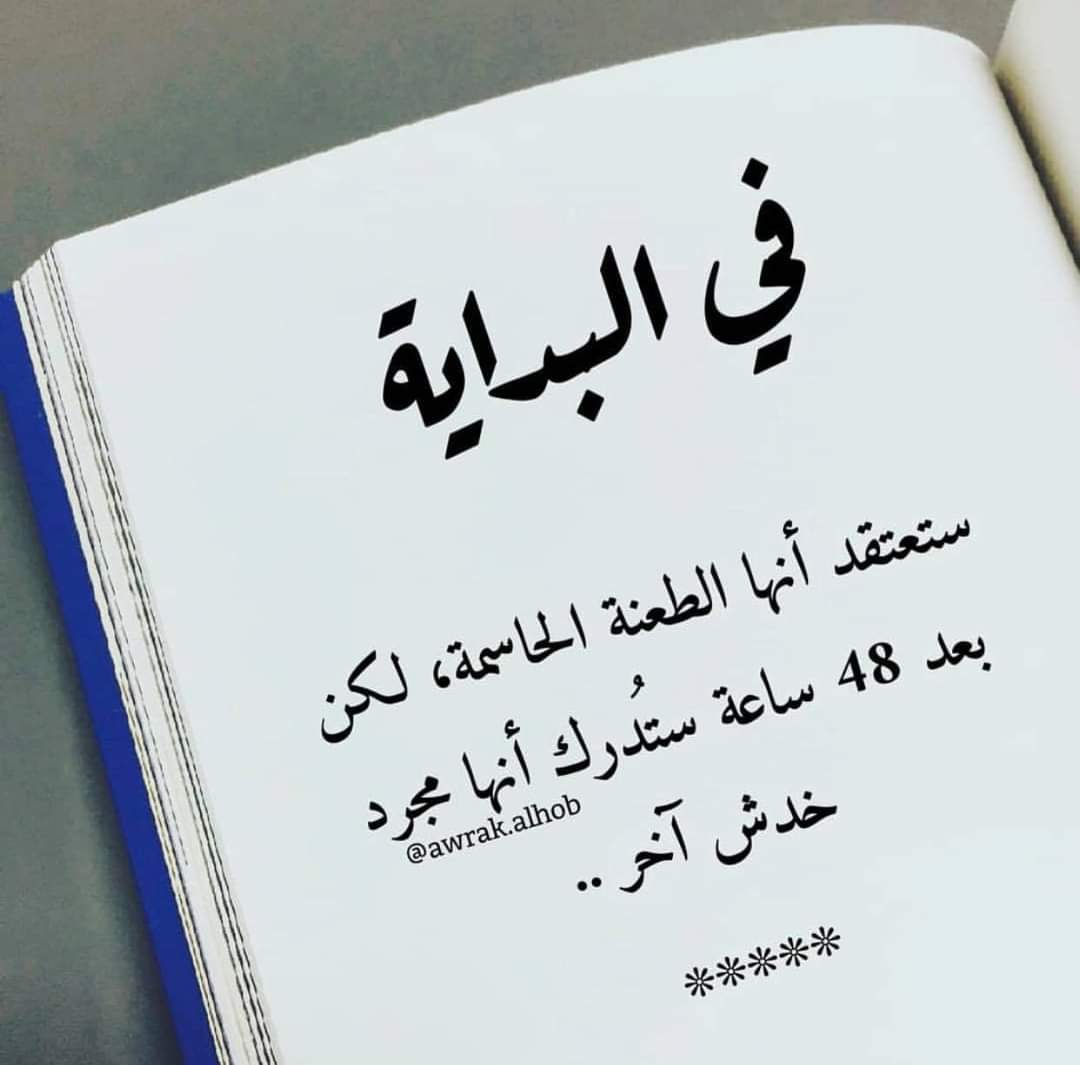 في البداية
ستعتقد أنها الطعنة الحاسمة، لكن
بعد 48 ساعة ستُدرك أنها مجرد
@awrak.alhob
خدش آخر ..
*****